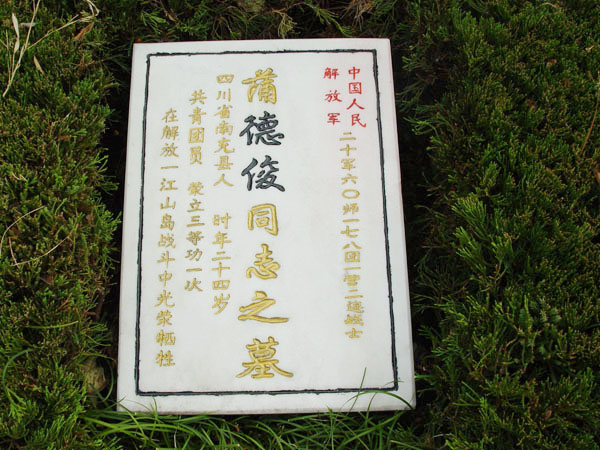 中国人民
解放军
二十军六〇师一七八团一营二连战士
蒲德俊同志之墓
四川省南充县人 时年二十四岁
共青团员 荣立三等功一次
在解放一江山岛战斗中光荣牺牲